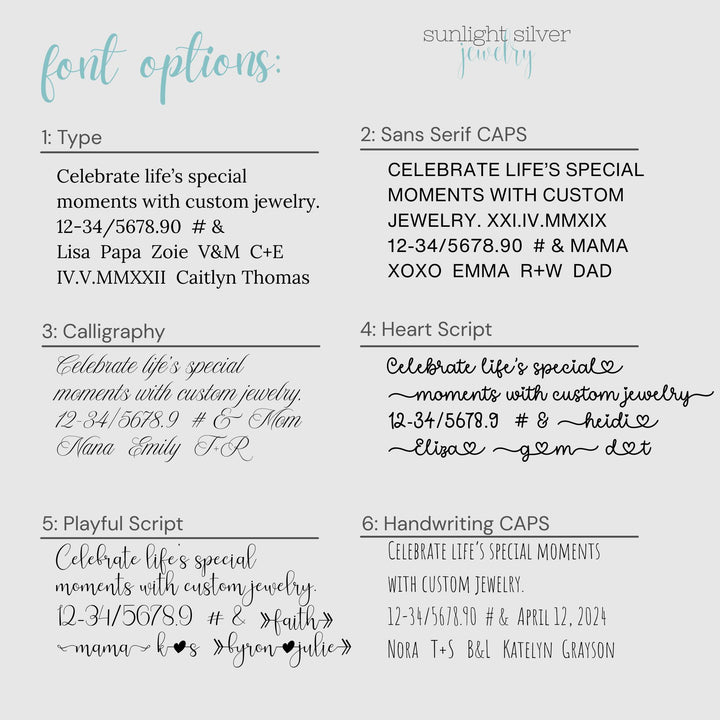 font options:
sunlight silver
jewelry
1: Type
Celebrate life's special
moments with custom jewelry.
12-34/5678.90 # &
Lisa Papa Zoie V&M C+E
IV.V.MMXXII Caitlyn Thomas
2: Sans Serif CAPS
CELEBRATE LIFE'S SPECIAL
MOMENTS WITH CUSTOM
JEWELRY. XXI.IV.MMXIX
12-34/5678.90 # & MAMA
XOXO EMMA R+W DAD
3: Calligraphy
Celebrate life's special
moments with custom jewelry.
12-34/5678.9 # & Mom
Nana Emily T+R
4: Heart Script
Celebrate life's special♡
moments with custom jewelry
12-34/5678.9 # & heidi♡
Eliza♡ g♡m d♡t
5: Playful Script
Celebrate life's special
moments with custom jewelry.
12-34/5678.9 # & »faith»
mama k♥s »byron♥julie»
6: Handwriting CAPS
CELEBRATE LIFE'S SPECIAL MOMENTS
WITH CUSTOM JEWELRY.
12-34/5678.90 # & APRIL 12, 2024
NORA T+S B&L KATELYN GRAYSON